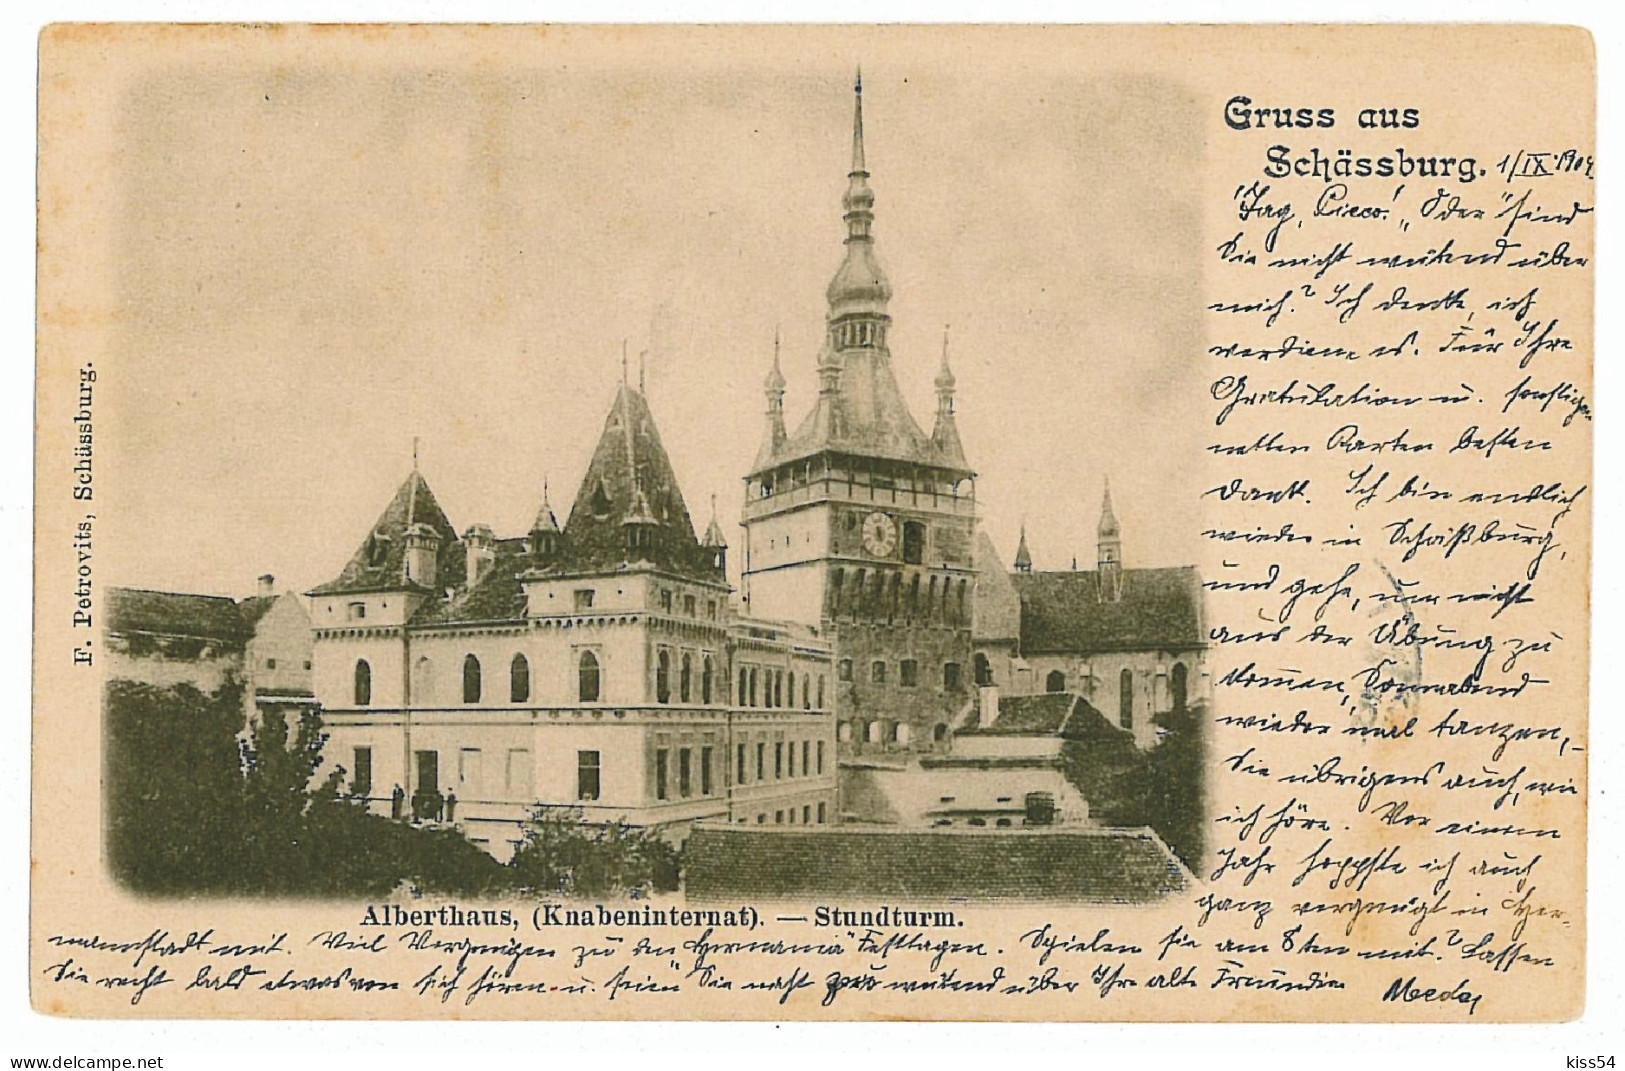 Gruss aus
Schässburg. 1/IX 1904
"Tag, Cicco!" "Oder" sind
Sie nicht wütend über
mich? Ich denke, ich
verdiene es. Für Ihre
Gratulation u. sonstigen
netten Karten besten
Dank. Ich bin endlich
wieder in Schäßburg,
und gehe, um nicht
aus der Übung zu
kommen, Sonnabend
wieder mal tanzen,-
Sie übrigens auch, wie
ich höre. Vor einem
Jahr hopste ich auch
ganz vergnügt in Her-
mannstadt mit. Viel Vergnügen zu den "Hermania" Festtagen. Spielen Sie am 8ten mit? Lassen
Sie recht bald etwas von sich hören u. seien Sie nicht wütend über Ihre alte Freundin
F. Petrovits, Schässburg.
Alberthaus, (Knabeninternat). — Stundturm.
kiss54